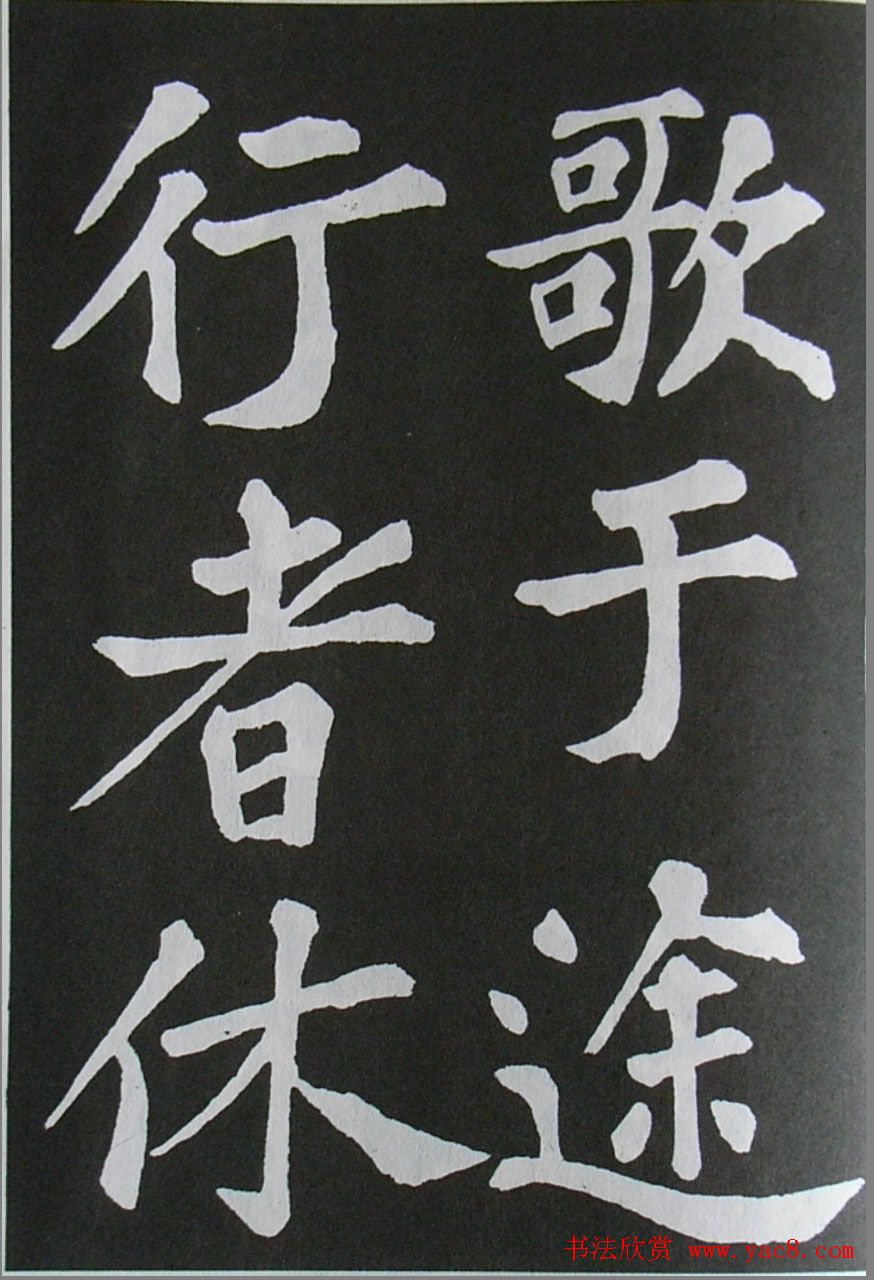 歌于途
行者休
书法欣赏 www.yac8.com